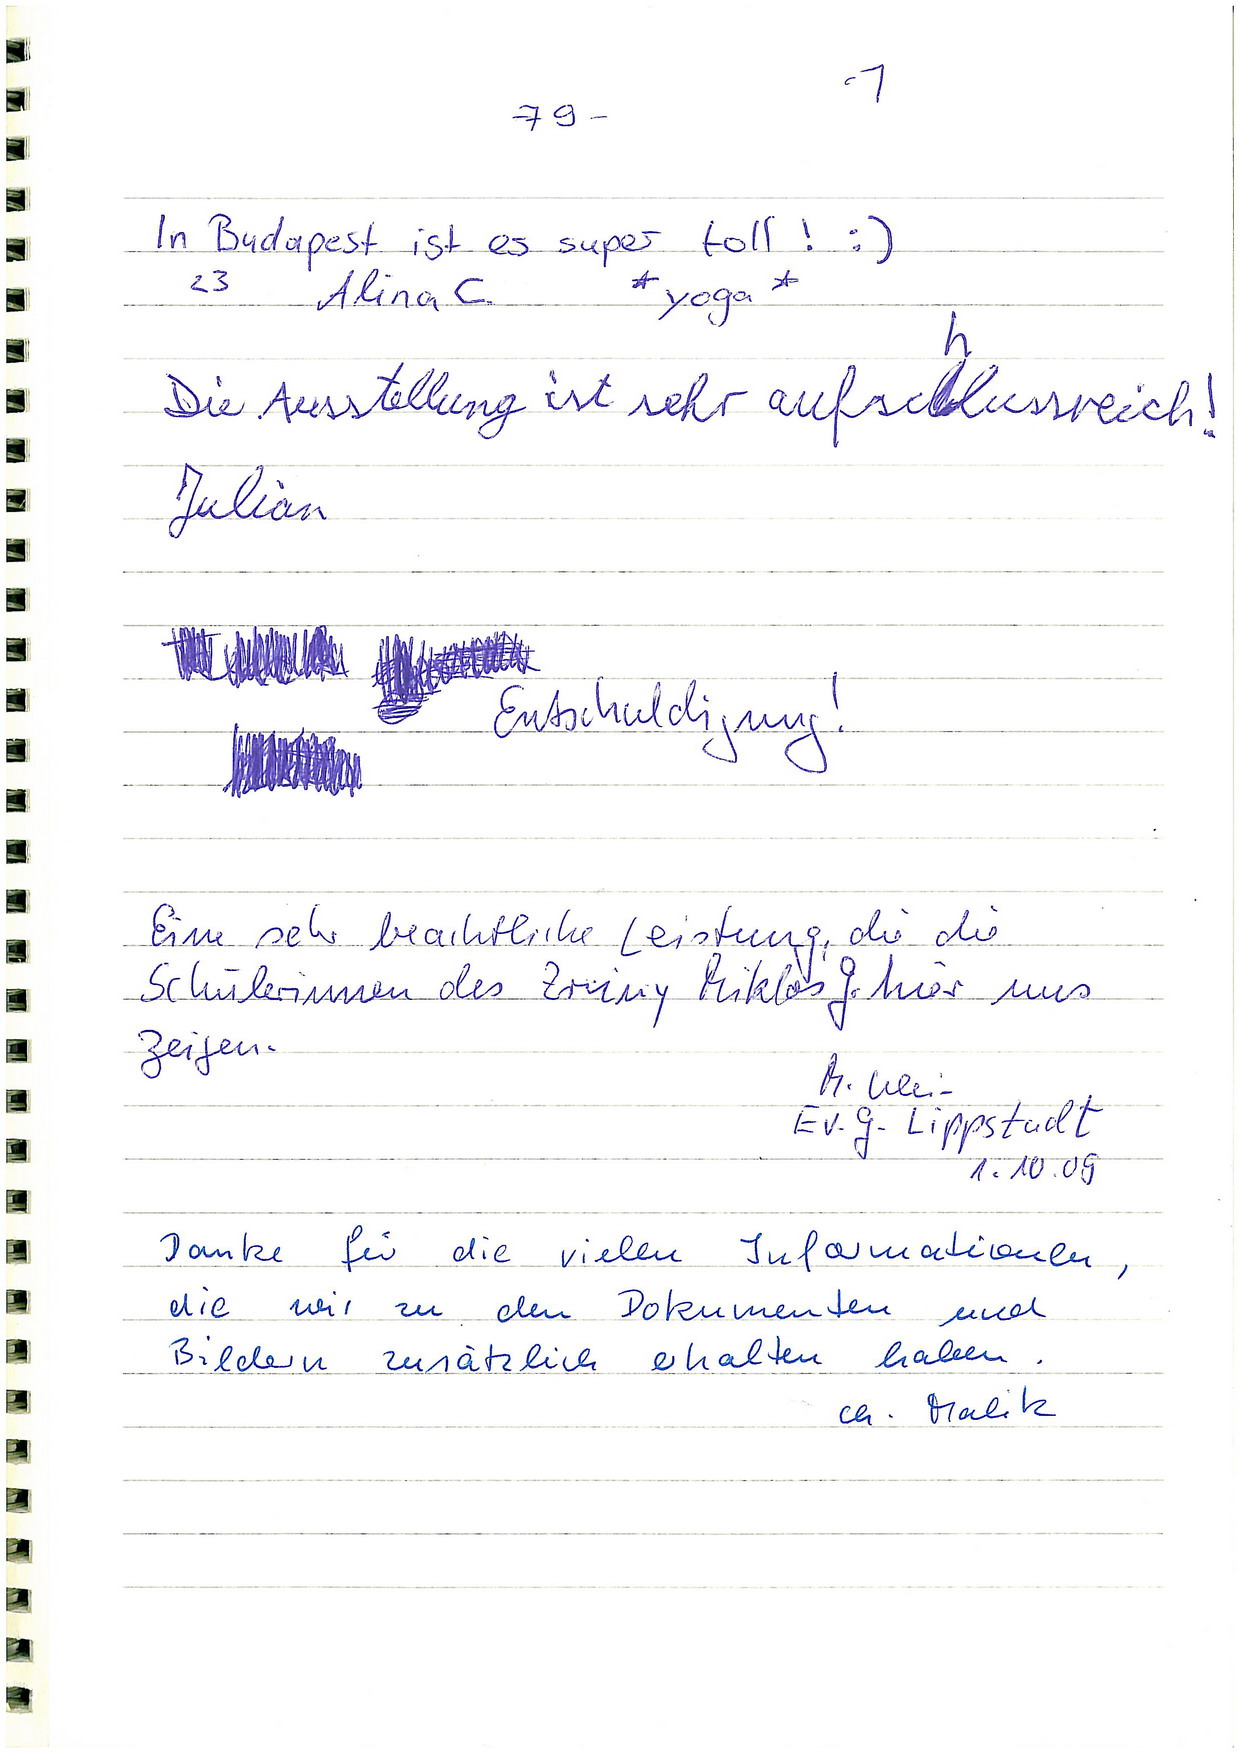 79-
In Budapest ist es super toll! :)
23 Alina C. *yoga*
Die Ausstellung ist sehr aufschlussreich!
Julian
Entschuldigung!
Eine sehr beachtliche Leistung, die die
Schülerinnen des Zrinyi Miklós G. hier uns
zeigen.
M.
Ev. G. Lippstadt
1.10.09
Danke für die vielen Informationen,
die wir zu den Dokumenten und
Bildern zusätzlich erhalten haben.
Ch. Malik